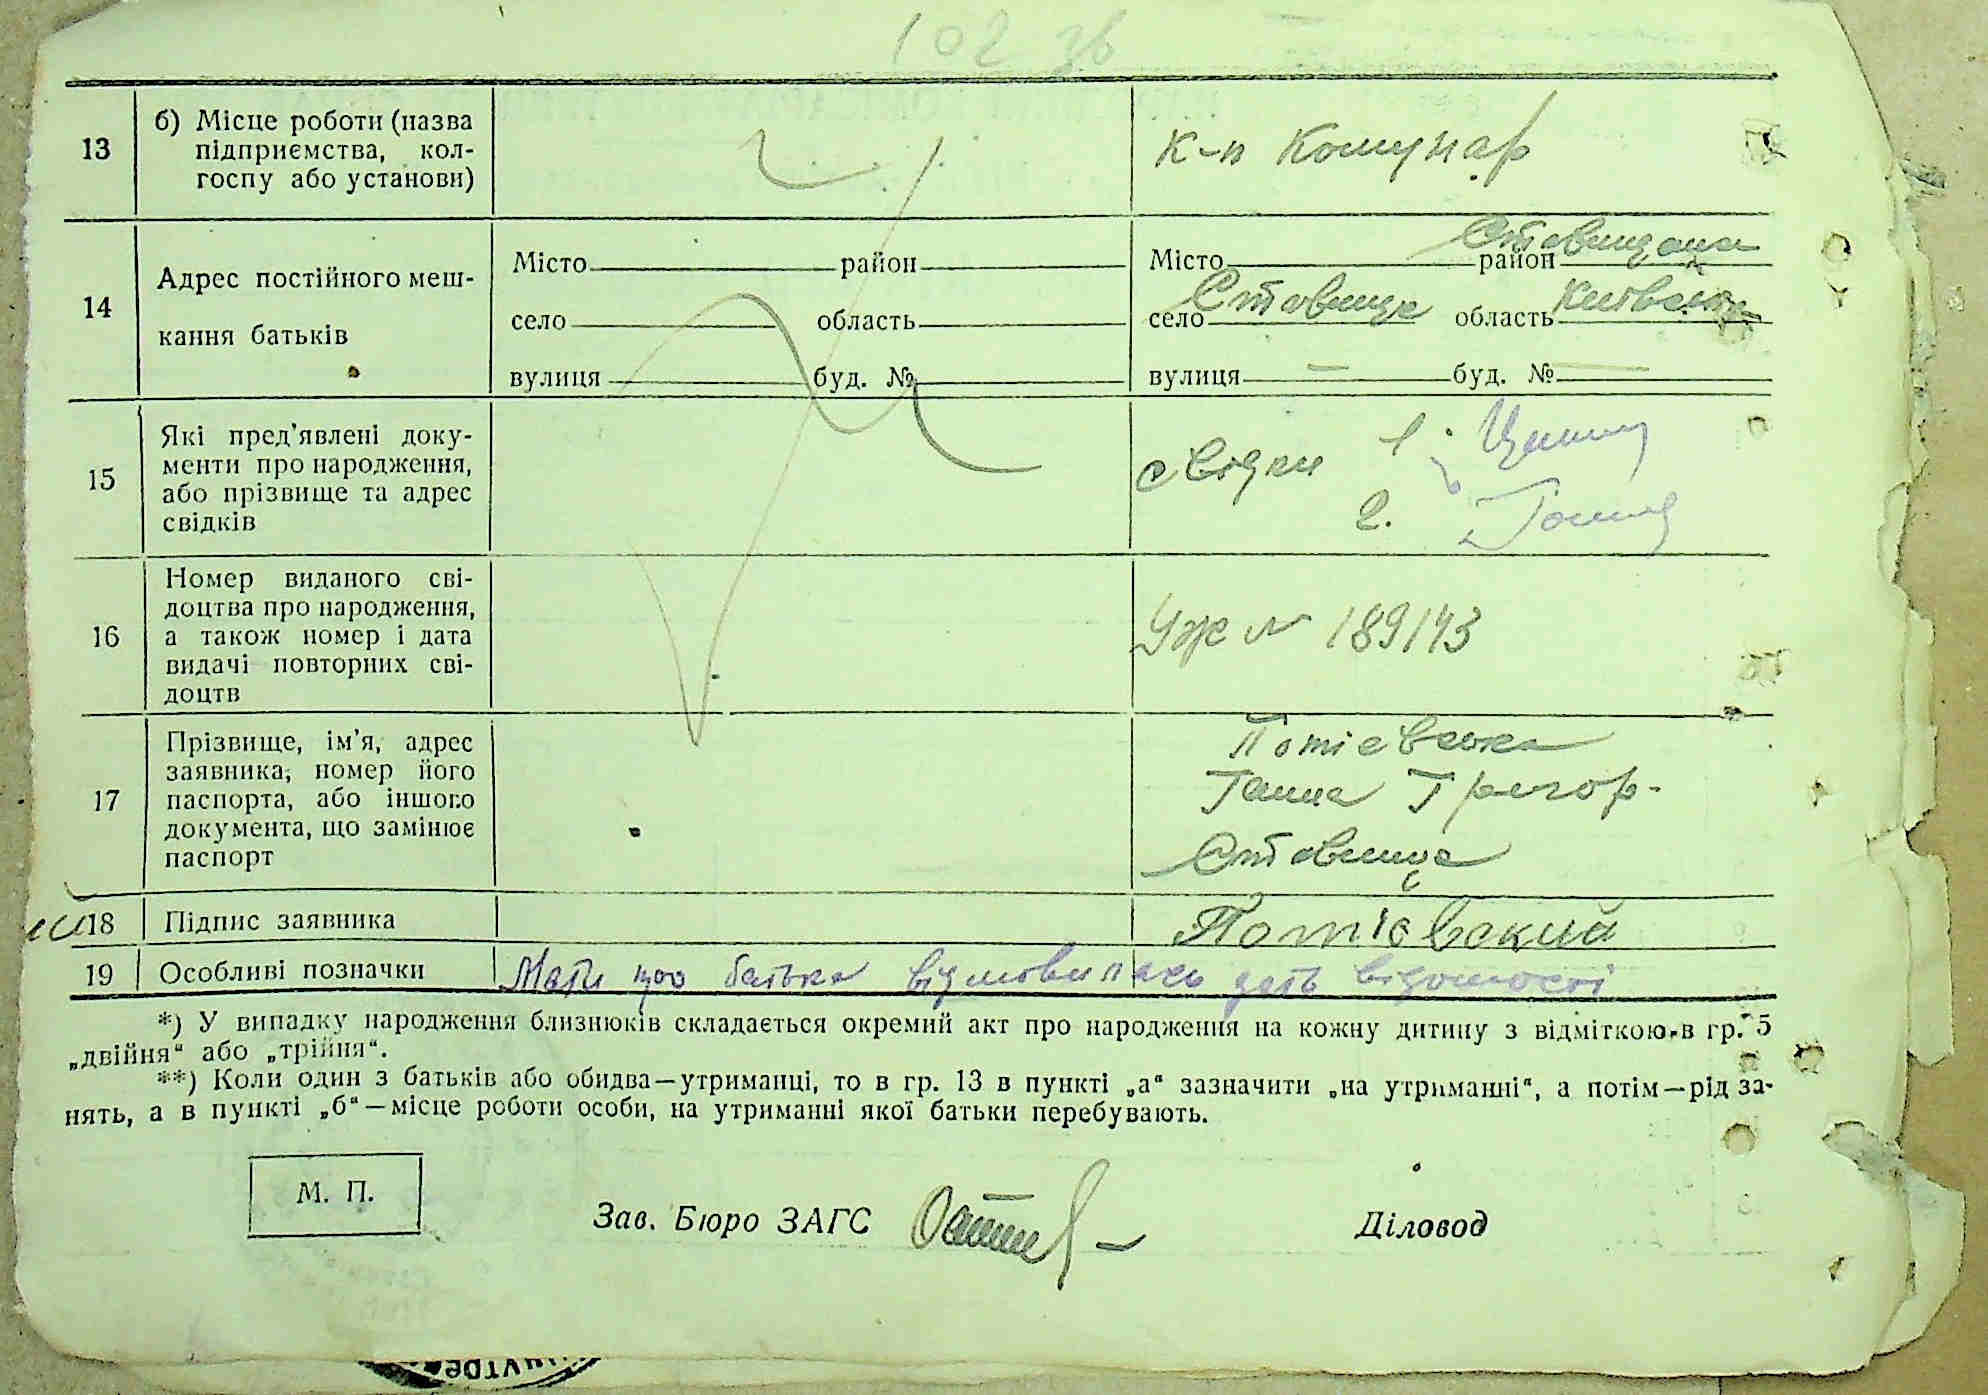 102 зв
13
б) Місце роботи (назва
підприємства, кол-
госпу або установи)
к-п Комунар
14
Адрес постійного меш-
кання батьків
Місто район
село область
вулиця буд. №
Місто район Ставищанс
село Ставище область Київська
вулиця — буд. № —
15
Які пред'явлені доку-
менти про народження,
або прізвище та адрес
свідків
свідки 1.
2.
16
Номер виданого сві-
доцтва про народження,
а також номер і дата
видачі повторних сві-
доцтв
УЖ № 189143
17
Прізвище, ім'я, адрес
заявника, номер його
паспорта, або іншого
документа, що замінює
паспорт
Потієвська
Ганна Григор.
Ставище
18
Підпис заявника
Потієвский
19
Особливі позначки
Мати про батька відмовилась дать відомості
*) У випадку народження близнюків складається окремий акт про народження на кожну дитину з відміткою в гр. 5
„двійня“ або „трійня“.
**) Коли один з батьків або обидва—утриманці, то в гр. 13 в пункті „а“ зазначити „на утриманні“, а потім—рід за-
нять, а в пункті „б“—місце роботи особи, на утриманні якої батьки перебувають.
М. П.
Зав. Бюро ЗАГС
Діловод